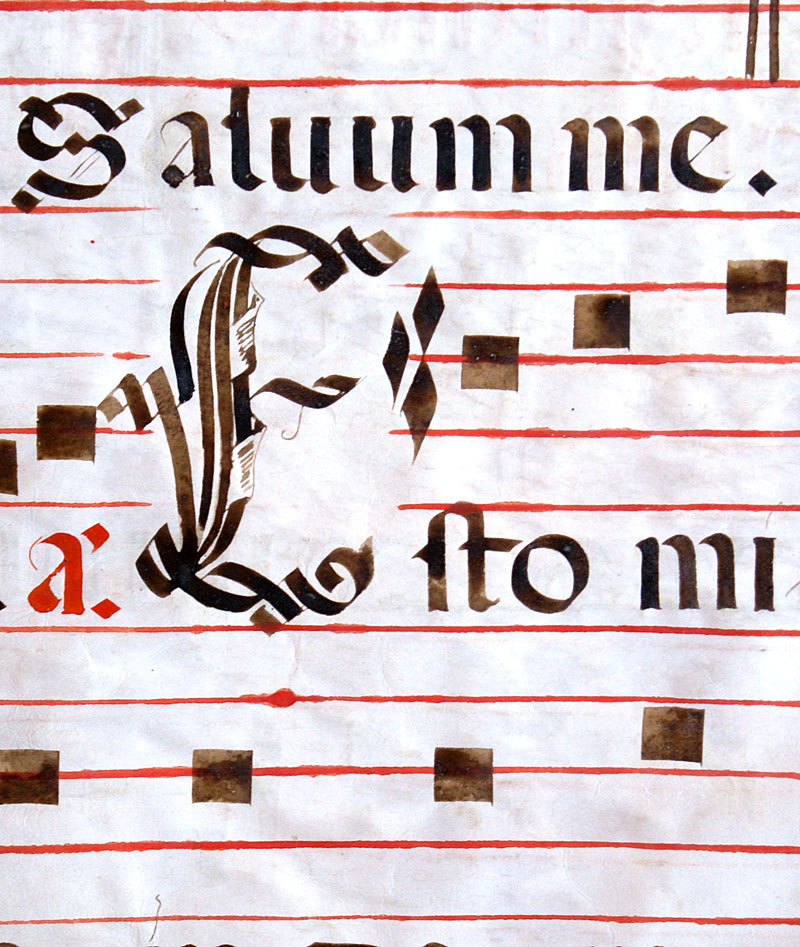 Saluum me.
a. Esto mi